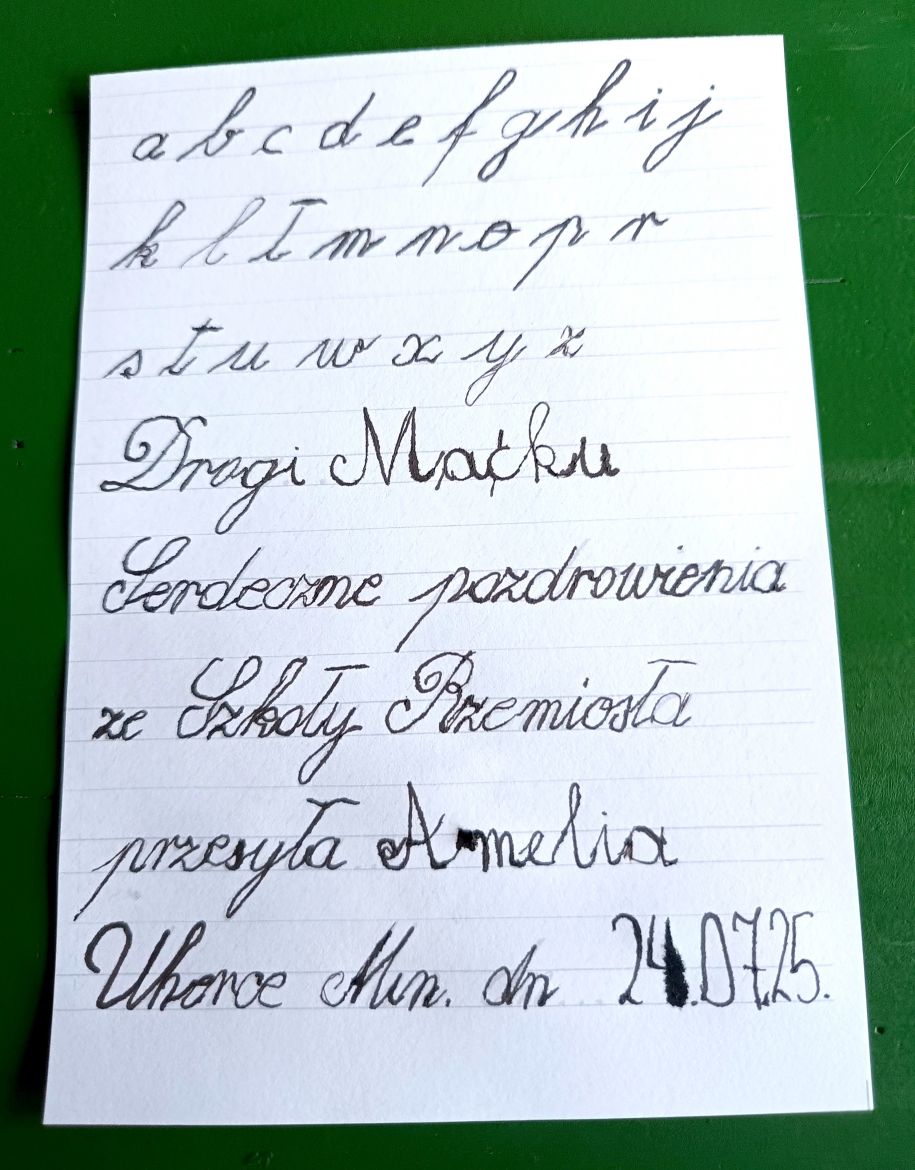 a b c d e f g h i j
k l ł m n o p r
s t u w x y z
Drogi Maćku
Serdeczne pozdrowienia
ze Szkoły Rzemiosła
przesyła Amelia
Uhorce Min. dn 24.07.25.